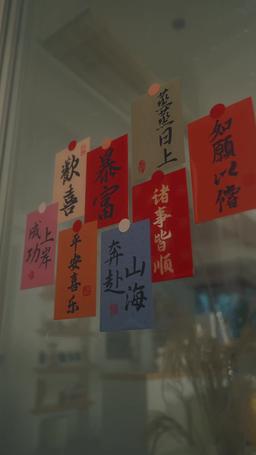 蒸蒸日上
如願以償
歡喜
暴富
诸事皆顺
上岸
成功
平安喜乐
奔赴
山海